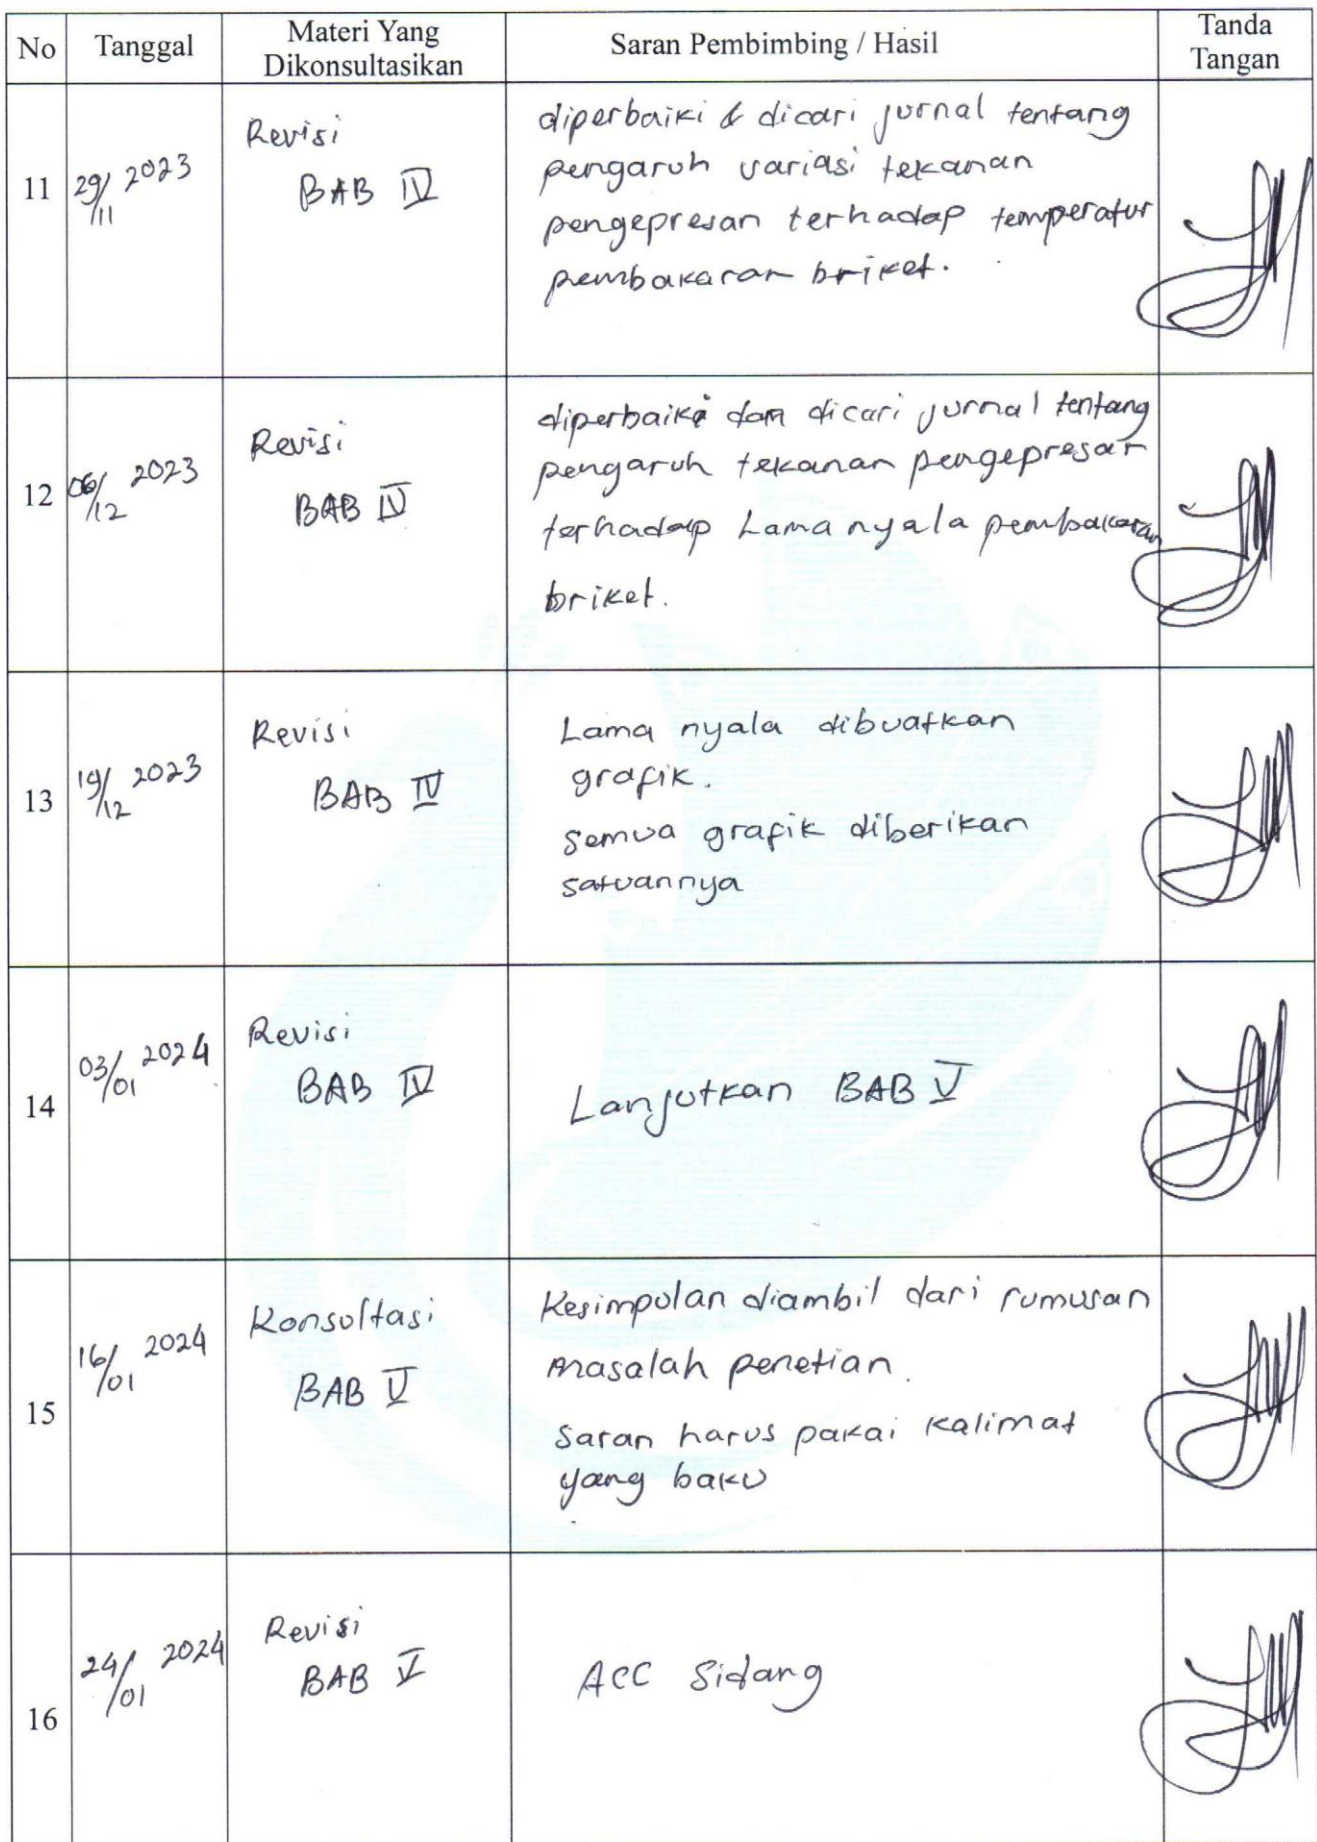 No
Tanggal
Materi Yang
Dikonsultasikan
Saran Pembimbing / Hasil
Tanda
Tangan
11
29/11 2023
Revisi
BAB IV
diperbaiki & dicari jurnal tentang
pengaruh variasi tekanan
pengepresan terhadap temperatur
pembakaran briket.
12
06/12 2023
Revisi
BAB IV
diperbaiki dan dicari jurnal tentang
pengaruh tekanan pengepresan
terhadap Lama nyala pembakaran
briket.
13
19/12 2023
Revisi
BAB IV
Lama nyala dibuatkan
grafik.
semua grafik diberikan
satuannya
14
03/01 2024
Revisi
BAB IV
Lanjutkan BAB V
15
16/01 2024
Konsultasi
BAB V
Kesimpulan diambil dari rumusan
masalah penetian.
Saran harus pakai kalimat
yang baku
16
24/01 2024
Revisi
BAB V
ACC Sidang